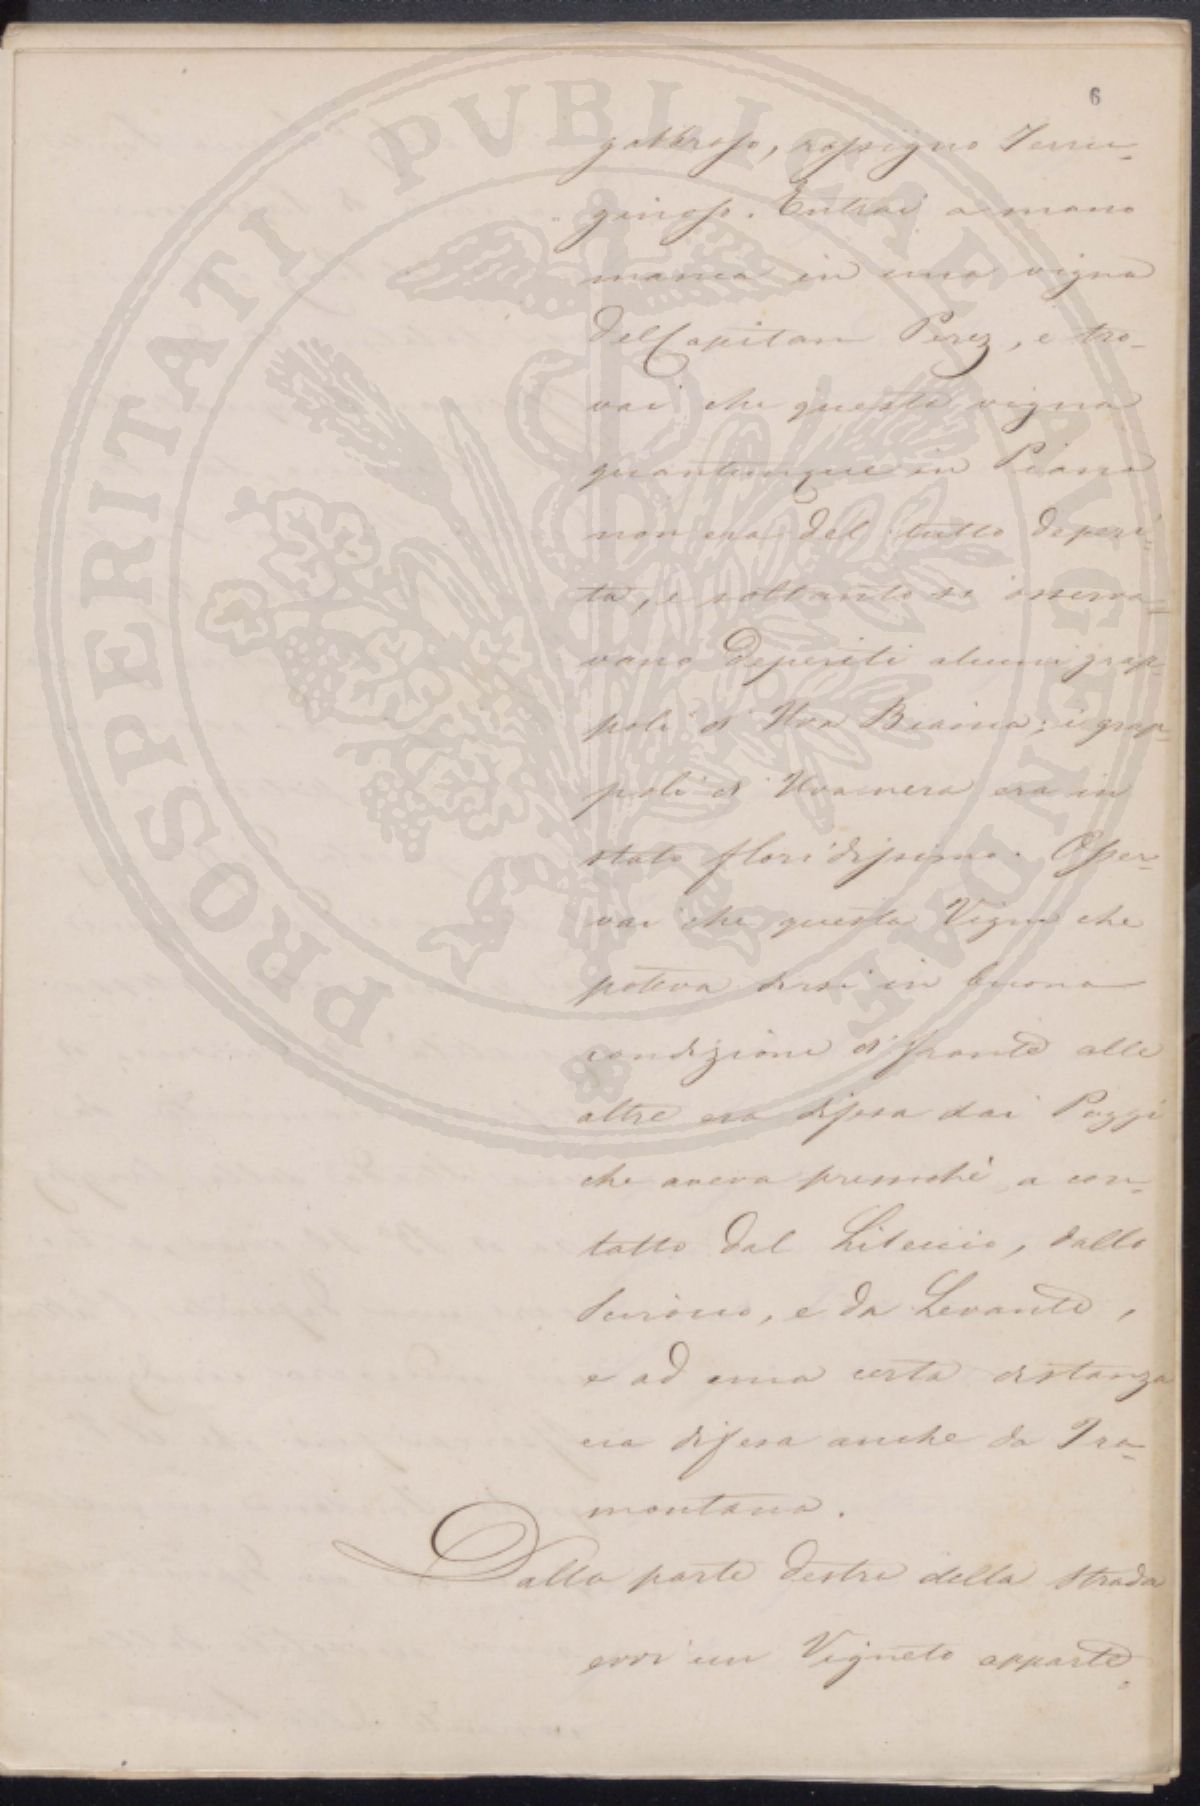 6
gabbroso, rossigno Ferru-
ginoso. Entrai a mano
manca in una vigna
del Capitan Perez, e tro-
vai che questa vigna
quantunque in Piano
non era del tutto deperi-
ta, e soltanto si osserva-
vano deperiti alcuni grap-
poli di Uva Bianca; i grap-
poli di Uva nera era in
stato floridissimo. Osser-
vai che questa Vigna che
poteva dirsi in buona
condizione di fronte alle
altre era difesa dai Poggi
che aveva pressochè a con-
tatto dal Libeccio, dallo
Scirocco, e da Levante,
e ad una certa distanza
era difesa anche da Tra-
montana.
Dalla parte destra della strada
evvi un Vigneto apparte-
PROSPERITATI PVBLICAE AVGENDAE